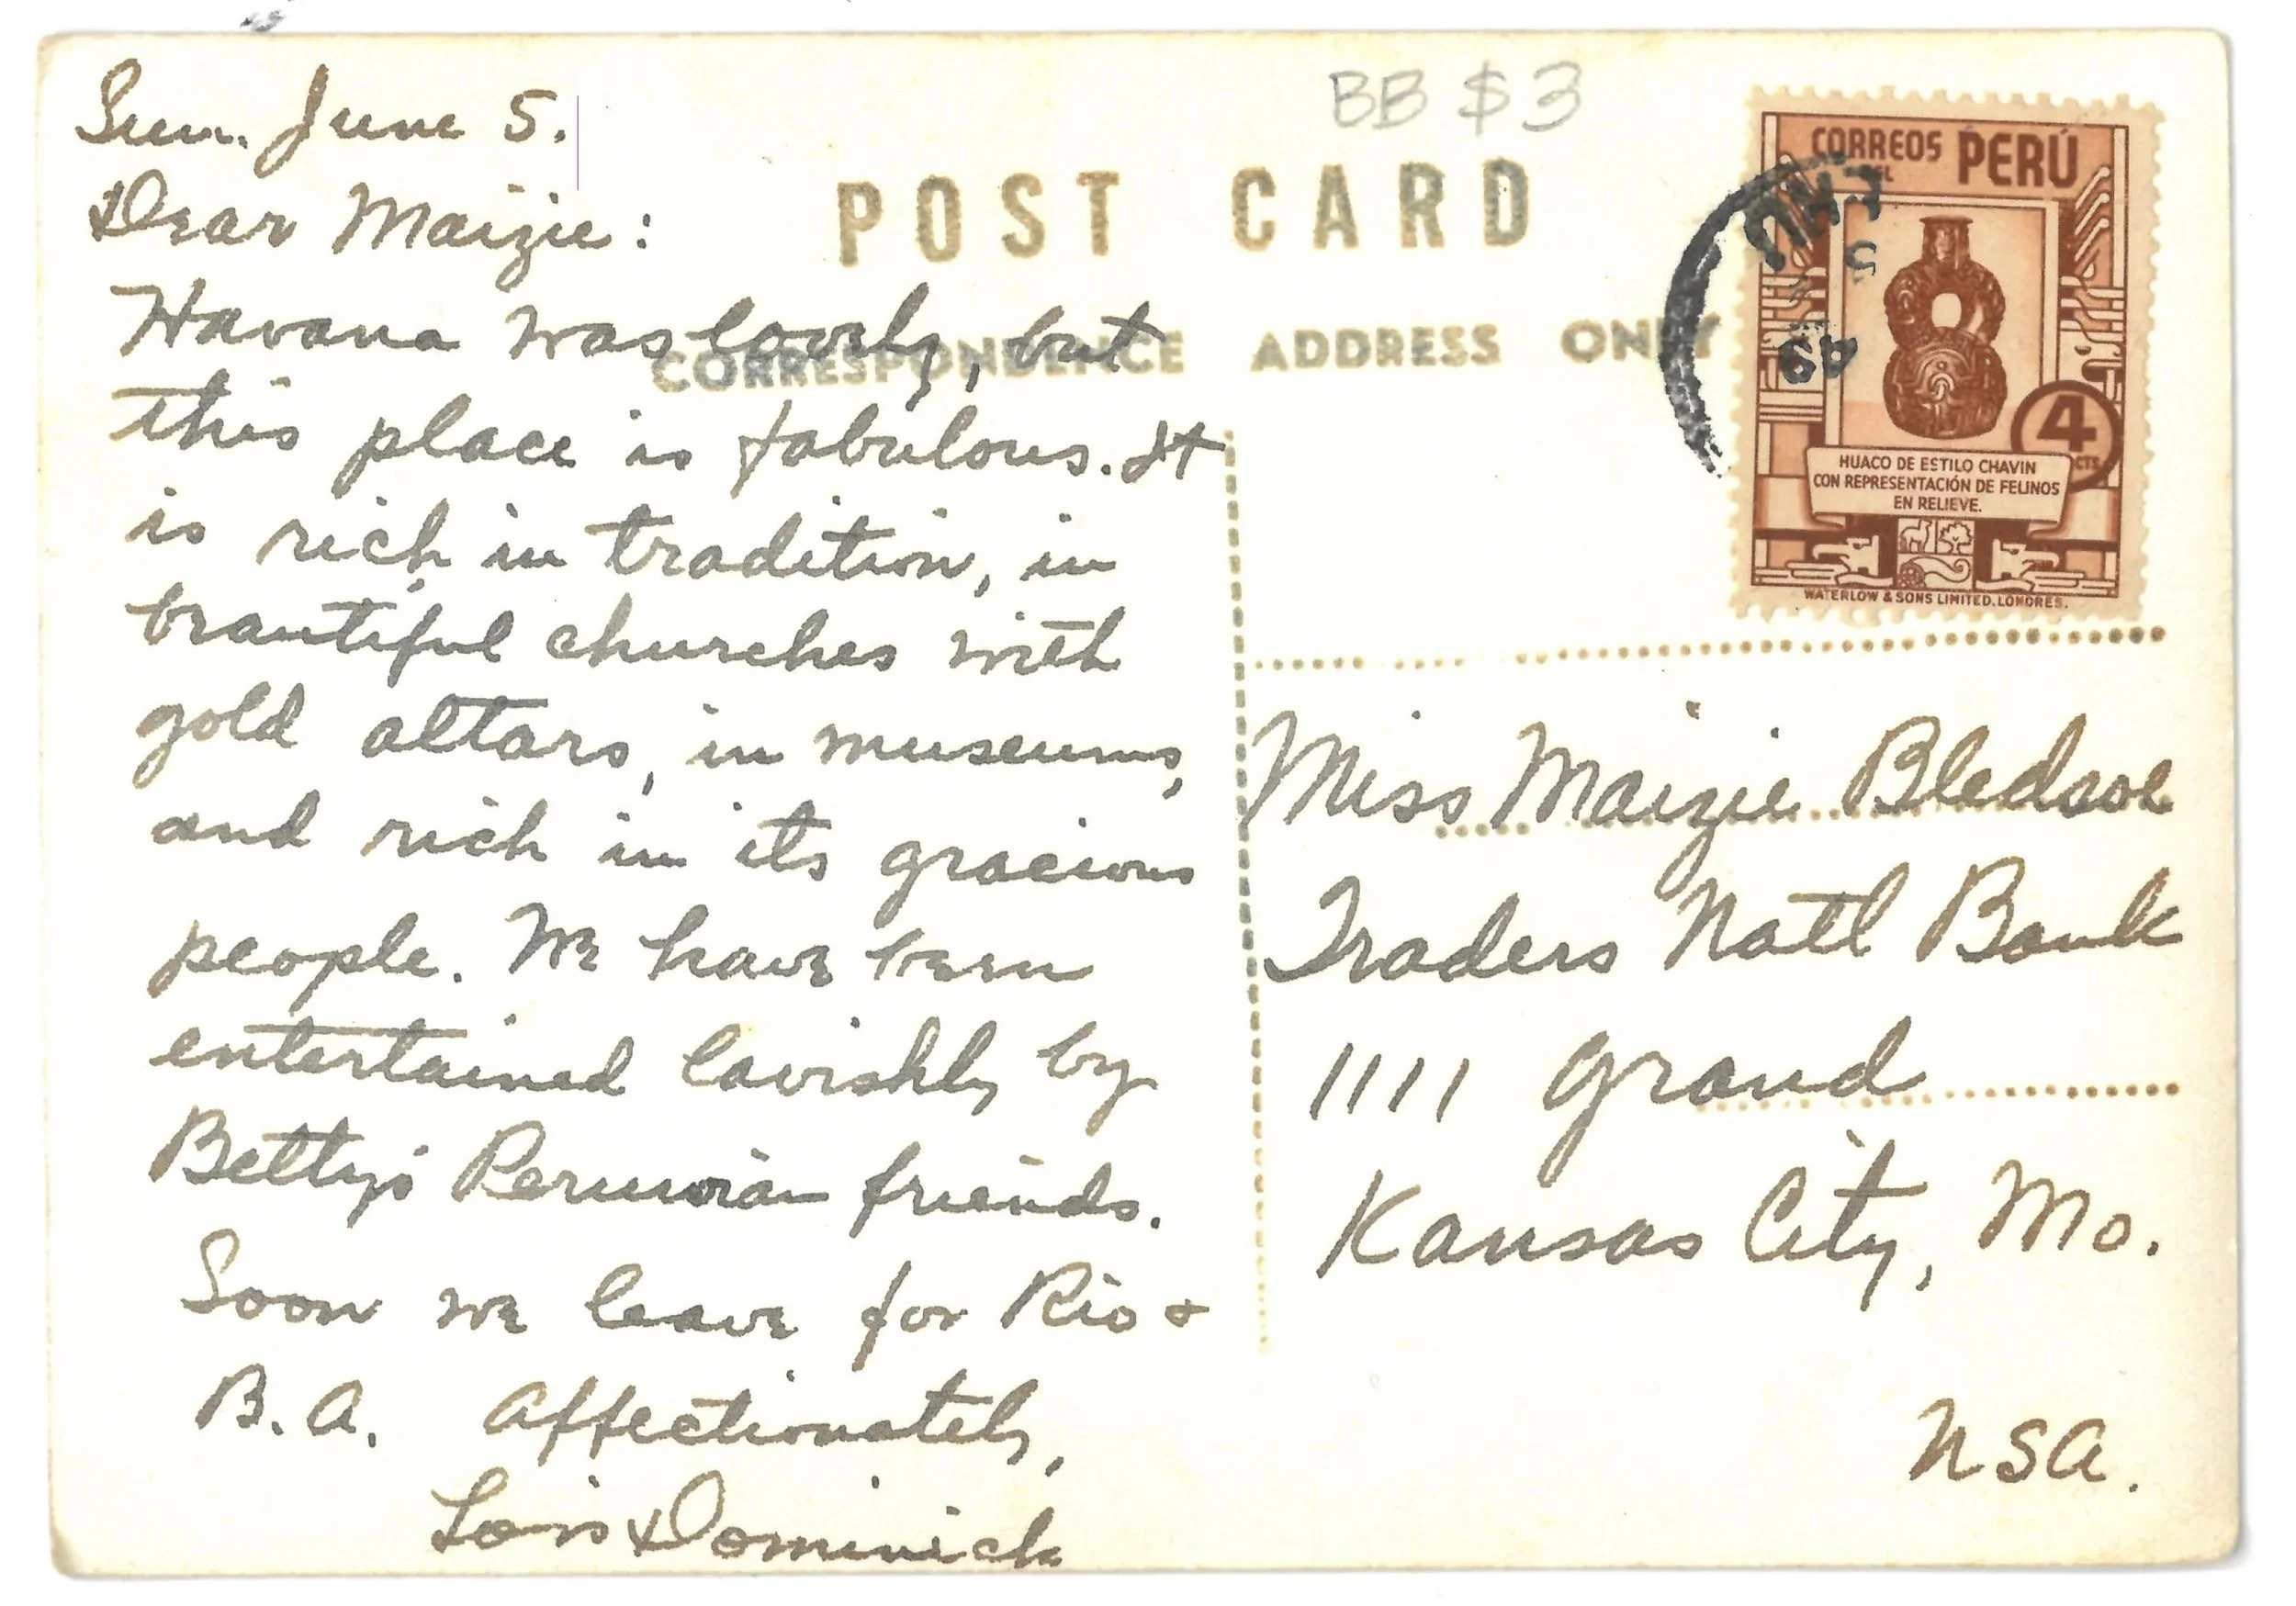 Sun. June 5.
Dear Maizie:
Havana was lovely, but
this place is fabulous. It
is rich in tradition, in
beautiful churches with
gold altars, in museums,
and rich in its gracious
people. We have been
entertained lavishly by
Betty's Peruvian friends.
Soon we leave for Rio &
B.A. Affectionately,
Lois & Dominick
BB $3
POST CARD
CORRESPONDENCE ADDRESS ONLY
CORREOS DEL PERÚ
5
49
4 CTS.
HUACO DE ESTILO CHAVIN
CON REPRESENTACIÓN DE FELINOS
EN RELIEVE.
WATERLOW & SONS LIMITED, LONDRES.
Miss Maizie Bledsoe
Traders Natl Bank
1111 Grand
Kansas City, Mo.
USA.